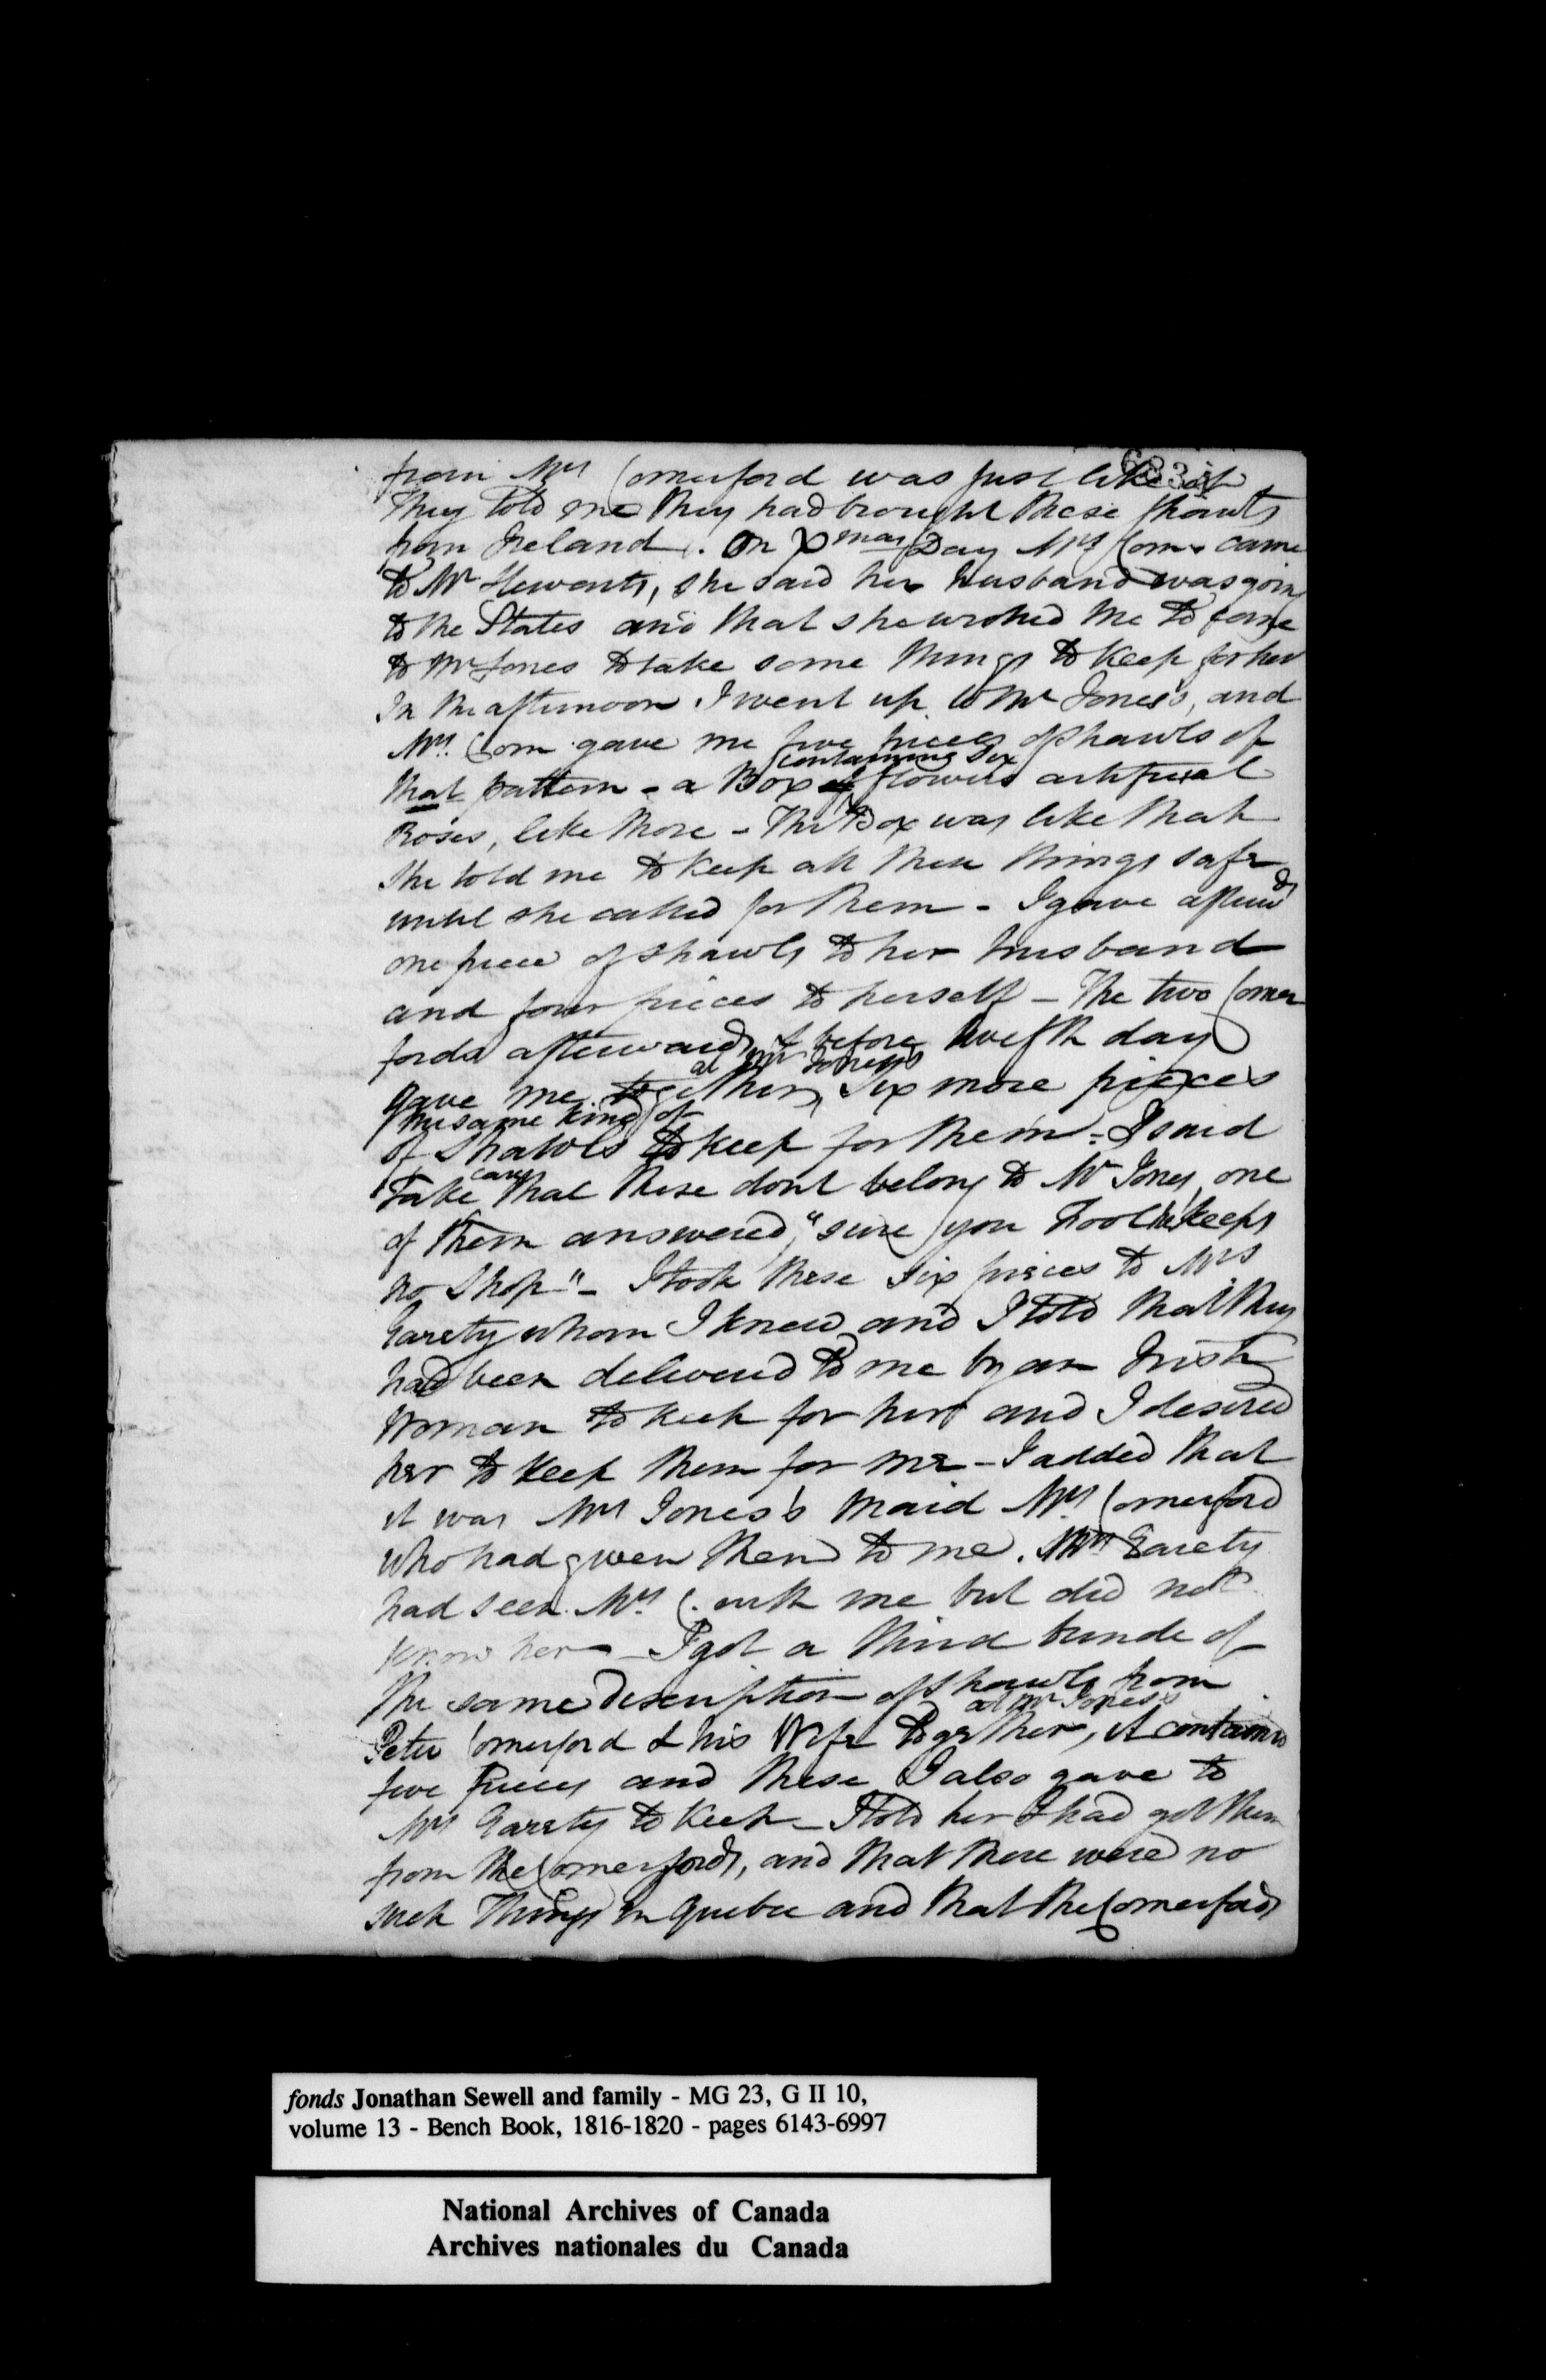 from Mrs Comerford was just like it
They told me they had brought these shawls
from Ireland. On Xmas Day Mrs Com. came
to Mr Stewarts, she said her husband was going
to the States and that she wished me to come
to Mr Jones to take some things to keep for her
In the afternoon I went up to Mr Jones's, and
Mrs Com gave me five pieces of shawls of
containing six
that pattern - a Box of flowers artificial
Roses, like those - The Box was like that
She told me to keep all these things safe
until she called for them - I gave afterwds
one piece of shawls to her husband
and four pieces to herself - The two Comer
fords afterwards & before twelfth day
at Mr Jones's
gave me together, six more pieces
the same kind of
of shawls to keep for them - I said
care
Take that these dont belong to Mr Jones, one
of them answered, "sure you Fool he keeps
no shop" - I took these six pieces to Mrs
Garety whom I knew and I told that they
had been delivered to me by an Irish
Woman to keep for her and I desired
her to keep them for me - I added that
it was Mrs Jones's Maid Mrs Comerford
who had given them to me. Mrs Garety
had seen Mrs C. with me but did not
know her - I got a third bundle of
the same description of shawls from
at Mr Jones's
Peter Comerford & his Wife together, it contained
five pieces and these I also gave to
Mrs Garety to keep - I told her I had got them
from the Comerfords, and that there were no
such Things in Quebec and that the Comerfords
fonds Jonathan Sewell and family - MG 23, G II 10,
volume 13 - Bench Book, 1816-1820 - pages 6143-6997
National Archives of Canada
Archives nationales du Canada